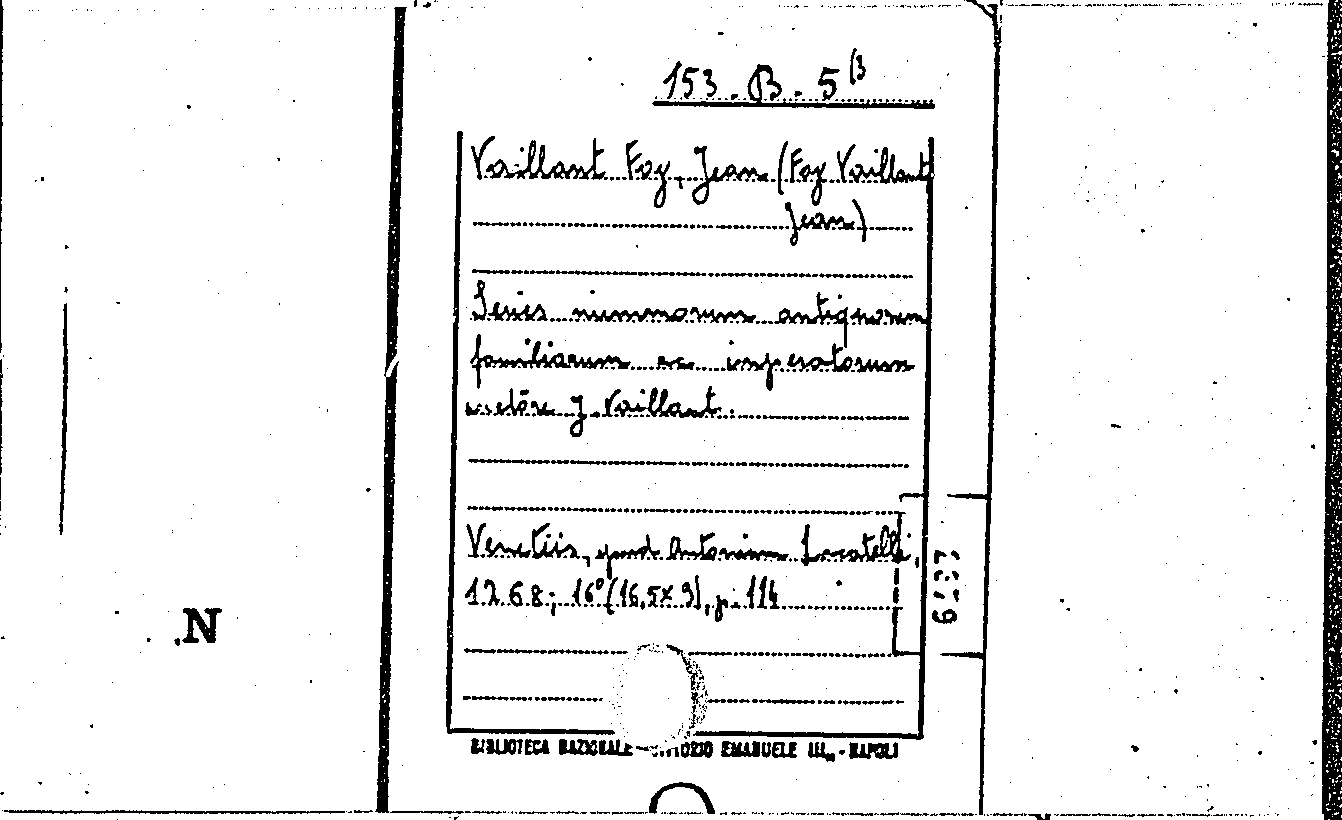 153 . B . 5 β
Vaillant Foy, Jean (Foy Vaillant
Jean)
Series nummorum antiquorum
familiarum ac imperatorum
auctore J. Vaillant.
Venetiis, apud Antonium Locatelli,
1768; 16° (16,5x9), p. 114
N
BIBLIOTECA NAZIONALE VITTORIO EMANUELE III„ - NAPOLI